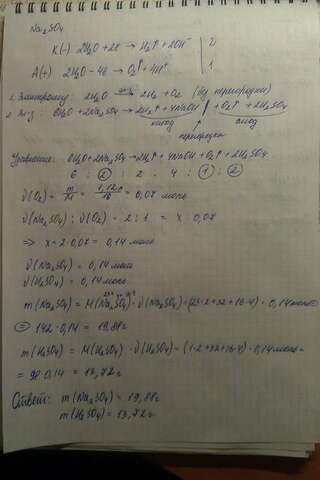 Na₂SO₄
K(-) 2H₂O + 2ē → H₂↑ + 2OH⁻ | 2
A(+) 2H₂O - 4ē → O₂↑ + 4H⁺ | 1
1. Электролиз: 2H₂O → 2H₂ + O₂ (без перегородки)
2. 6H₂O + 2Na₂SO₄ → 2H₂↑ + 4NaOH + O₂↑ + 2H₂SO₄
катод анод
перегородка
Уравнение: 6H₂O + 2Na₂SO₄ → 2H₂↑ + 4NaOH + O₂↑ + 2H₂SO₄
6 : 2 : 2 : 4 : 1 : 2
ν(O₂) = m/M = 1,12г/16 = 0,07 моль
ν(Na₂SO₄) : ν(O₂) = 2 : 1 = x : 0,07
⇒ x = 2·0,07 = 0,14 моль
ν(Na₂SO₄) = 0,14 моль
ν(H₂SO₄) = 0,14 моль
m(Na₂SO₄) = M(Na₂SO₄) · ν(Na₂SO₄) = (23·2+32+16·4) · 0,14 моль =
= 142 · 0,14 = 19,88г
m(H₂SO₄) = M(H₂SO₄) · ν(H₂SO₄) = (1·2+32+16·4) · 0,14 моль =
= 98·0,14 = 13,72г
Ответ: m(Na₂SO₄) = 19,88г
m(H₂SO₄) = 13,72г